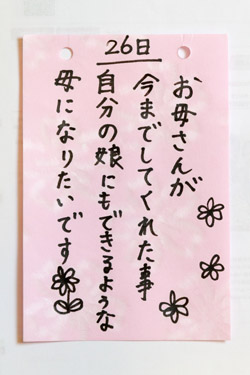 26日
お母さんが
今までしてくれた事
自分の娘にもできるような
母になりたいです